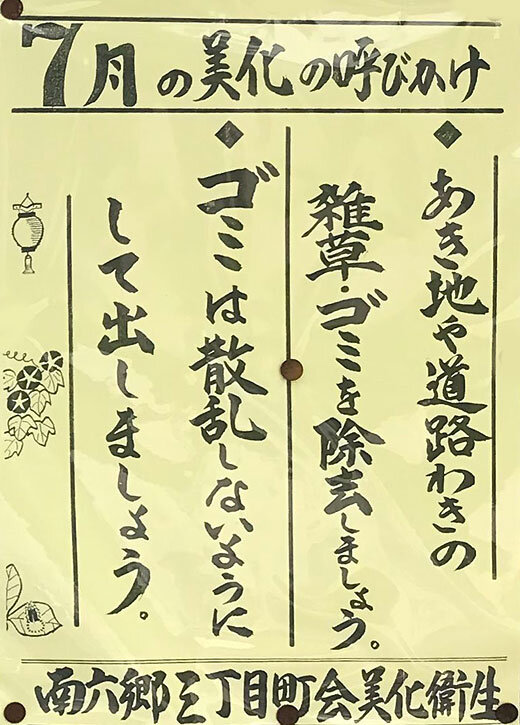 7月の美化の呼びかけ
◆あき地や道路わきの
雑草・ゴミを除去しましょう。
◆ゴミは散乱しないように
して出しましょう。
南六郷三丁目町会美化衛生